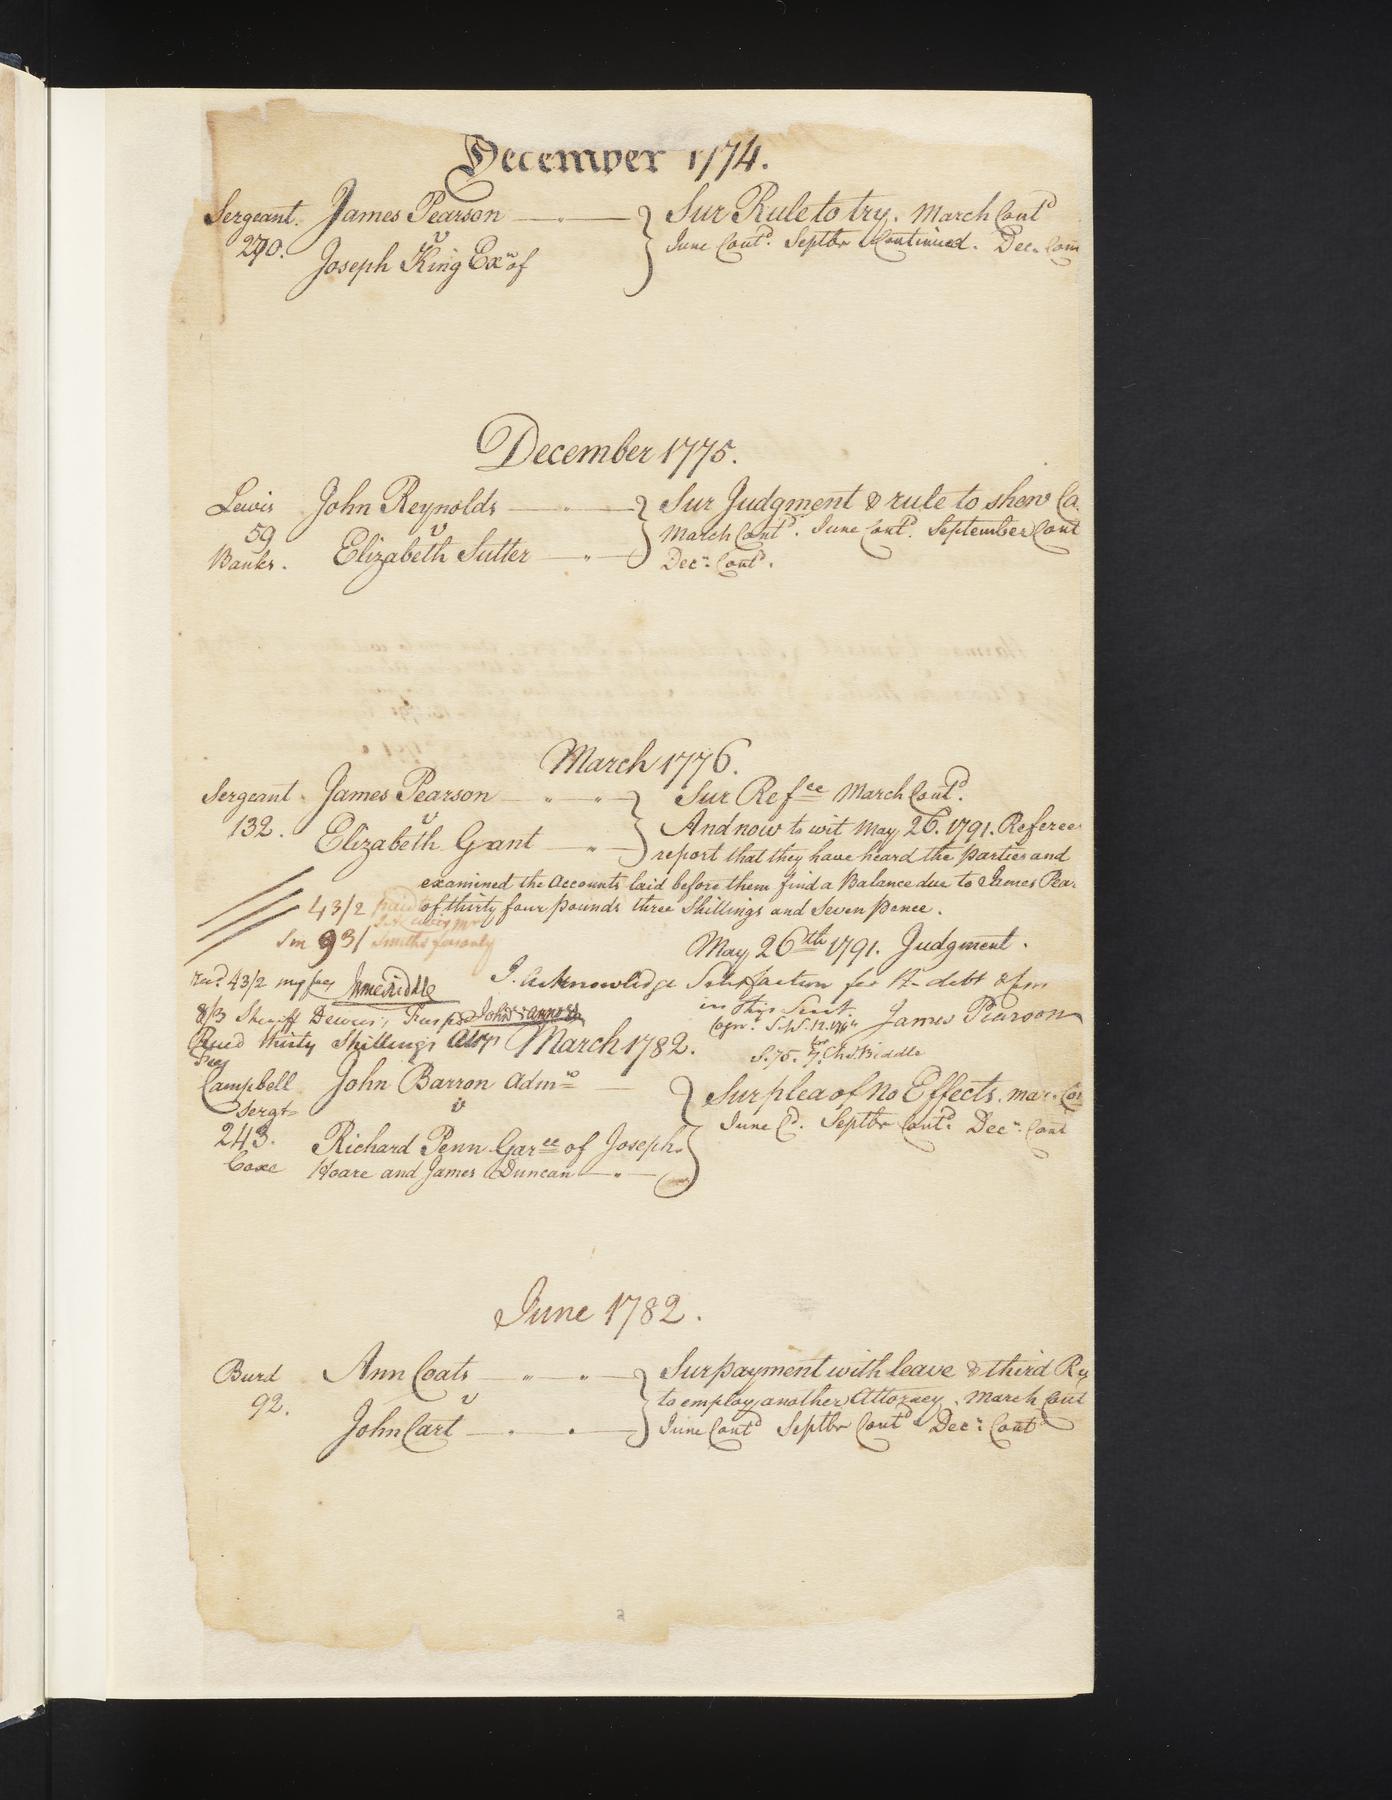 December 1774.
Sergeant. James Pearson } Sur Rule to try. March Contd
290. v June Contd. Septbr Continued. Dec. Con
Joseph King Exr of
December 1775.
Lewis John Reynolds } Sur Judgment & rule to shew Ca
59 v March Contd. June Contd. September Cont
Banks. Elizabeth Sutter Decr. Contd.
March 1776.
Sergeant James Pearson } Sur Refee March Contd.
132. v And now to wit May 26. 1791. Referees
Elizabeth Grant report that they have heard the parties and
examined the accounts laid before them find a Balance due to James Pear
43/2 paid of thirty four pounds three Shillings and Seven pence.
931 Smiths fees only
May 26th 1791. Judgment.
Recd. 43/2 my fees I acknowledge Satisfaction for the debt &
in this Suit.
8/3 Sheriff Dewees, James Pearson
Recd thirty Shillings March 1782.
Fees
Campbell John Barron Admr } Sur plea of No Effects. mar. Con
Sergt v June Cd. Septbr Contd Decr. Cont
243. Richard Penn Garee of Joseph
Coxe Hoare and James Duncan
June 1782.
Burd Ann Coats } Sur payment with leave & third Ru
92. v to employ another Attorney. March Cont
John Cart June Contd Septbr Contd Decr Contd
2